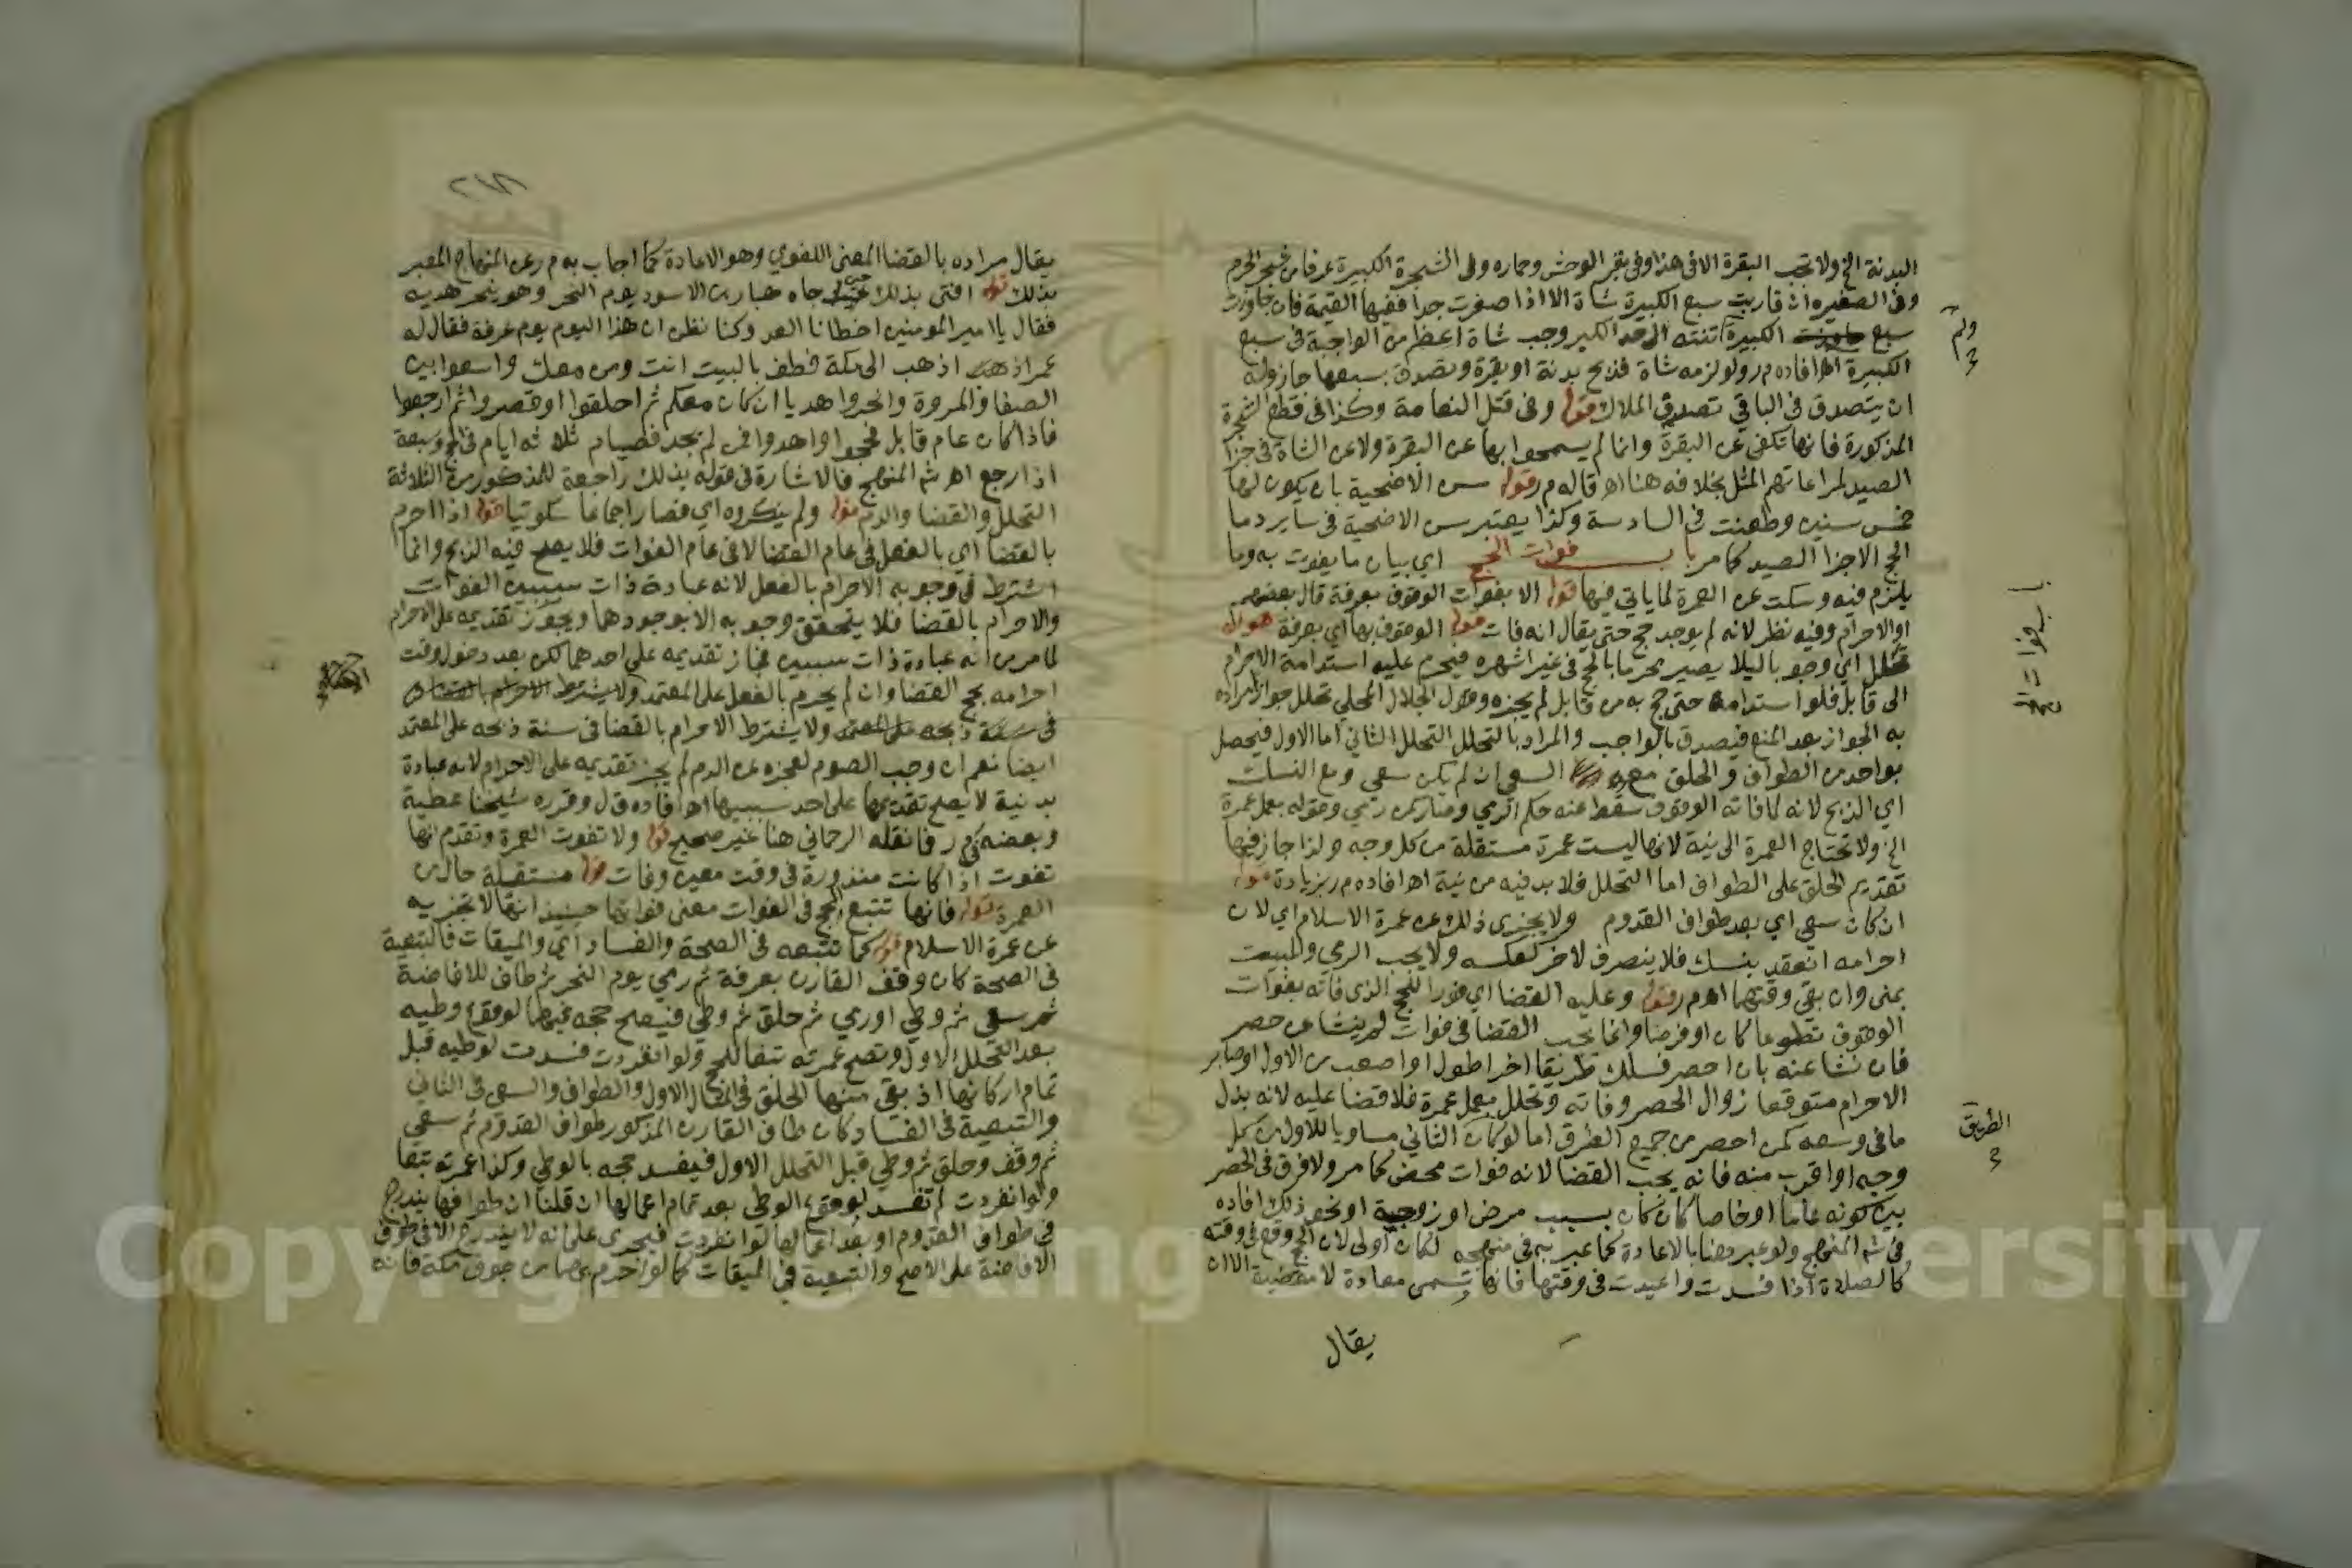 البدنة الخ ولا تجب البقرة الا في هذا وفي بقر الوحش وحماره وفي الشجرة الكبيرة عرفا من شجر الحرم
وفي الصغيرة ان قاربت سبع الكبيرة شاة الا اذا صغرت جدا ففيها القيمة فان جاوزت
سبع الكبيرة تنته الى حد الكبر وجب شاة اعظم من الواجبة في سبع
ولم
الكبيرة اهـ افاده م ر ولو لزمه شاة فذبح بدنة او بقرة وتصدق بسبعها جاز وله
ان يتصدق في الباقي تصدق الملاك قوله وفي قتل النعامة وكذا في قطع الشجرة
المذكورة فانها تكفي عن البقرة وانما لم يسمحوا بها عن البقرة ولا عن الشاة في جزا
الصيد لمراعاتهم المثل بخلافه هنا اهـ قاله م ر قوله سن الاضحية بان يكون لها
خمس سنين وطعنت في السادسة وكذا يعتبر سن الاضحية في ساير دما
الحج الا جزا الصيد كما مر باب فوات الحج اي بيان ما يفوت به وما
باب فوات الحج
يلزم فيه وسكت عن العمرة لما ياتي فيها قوله الا بفوات الوقوف بعرفة قال بعضهم
او الاحرام وفيه نظر لانه لم يوجد حج حتى يقال انه فات قوله الوقوف بها اي بعرفة قوله
تحلل اي وجوبا ليلا يصير محرما بالحج في غير اشهره فيحرم عليه استدامة الاحرام
الى قابل فلو استدامه حتى حج به من قابل لم يجزه وقول الجلال المحلي تحلل جوازا مراده
به الجواز بعد المنع فيصدق بالواجب والمراد بالتحلل التحلل الثاني اما الاول فيحصل
بواحد من الطواف والحلق معه السعي ان لم يكن سعي ومع النسك
اي الذبح لانه لما فاته الوقوف سقط عنه حكم الرمي وصار كمن رمي وقوله بعمل عمرة
الخ ولا تحتاج العمرة الى نية لانها ليست عمرة مستقلة من كل وجه ولذا جاز فيها
تقديم الحلق على الطواف اما التحلل فلا بد فيه من نية اهـ افاده م ر بزيادة قوله
ان كان سعي اي بعد طواف القدوم ولا يجزى ذلك عن عمرة الاسلام اي لان
احرامه انعقد بنسك فلا ينصرف لاخر كعكسه ولا يجب الرمي والمبيت
بمنى وان بقي وقتهما اهـ م ر قوله وعليه القضا اي فورا للحج الذي فاته بفوات
الوقوف تطوعا كان او فرضا وانما يجب القضا في فوات لم ينشا عن حصر
فان نشا عنه بان احصر فسلك طريقا اخر اطول او اصعب من الاول او صابر
الاحرام متوقعا زوال الحصر وفاته وتحلل بعمل عمرة فلا قضا عليه لانه بذل
ما في وسعه كمن احصر من جميع الطرق اما لو كان الثاني مساويا للاول من كل
الطريق
وجه او اقرب منه فانه يجب القضا لانه فوات محض كما مر ولا فرق في الحصر
بين كونه عاما او خاصا كان كان بسبب مرض او زوجية او نحو ذلك افاده
في شرح المنهج ولو عبر هنا بالاعادة كما عبر به في منهجه لكان اولى لان الحج وقع في وقته
كالصلاة اذا فسدت واعيدت في وقتها فانها تسمى معادة لا مقضية الا ان
يقال
٢١٨
يقال مراده بالقضا المعنى اللغوي وهو الاعادة كما اجاب به م ر عن المنهاج المعبر
بذلك قوله افتى بذلك حين جاه هبار بن الاسود يوم النحر وهو ينحر هديه
فقال يا امير المومنين اخطانا العد وكنا نظن ان هذا اليوم يوم عرفة فقال له
عمر اذهب الى مكة فطف بالبيت انت ومن معك واسعوا بين
الصفا والمروة وانحروا هديا ان كان معكم ثم احلقوا او قصروا ثم ارجعوا
فاذا كان عام قابل فحجوا واهدوا فمن لم يجد فصيام ثلاثة ايام في الحج وسبعة
اذا رجع اهـ شرح المنهج فالاشارة في قوله بذلك راجعة للمذكور من الثلاثة
التحلل والقضا والدم قوله ولم ينكروه اي فصار اجماعا سكوتيا قوله اذا احرم
بالقضا اي بالفعل في عام القضا لا في عام الفوات فلا يصح فيه الذبح وانما
اشترط في وجوبه الاحرام بالفعل لانه عبادة ذات سببين الفوات
والاحرام بالقضا فلا يتحقق وجوبه الا بوجودهما ويجوز تقديمه على الاحرام
لما مر من انه عبادة ذات سببين فجاز تقديمه على احدهما لكن بعد دخول وقت
احرامه بحج القضا وان لم يحرم بالفعل على المعتمد ولا يشترط الاحرام بالقضا
في سنة ذبحه على المعتمد ولا يشترط الاحرام بالقضا في سنة ذبحه على المعتمد
ايضا نعم ان وجب الصوم لعجزه عن الدم لم يجز تقديمه على الاحرام لانه عبادة
بدنية لا يصح تقديمها على احد سببيها اهـ افاده ق ل وقرره شيخنا عطية
وبعضه في م ر فما نقله الرحماني هنا غير صحيح قوله ولا تفوت العمرة وتقدم انها
تفوت اذا كانت منذورة في وقت معين وفات قوله مستقلة حال من
العمرة قوله فانها تتبع الحج في الفوات معنى فواتها حينيذ انها لا تجزيه
عن عمرة الاسلام قوله كما تتبعه في الصحة والفساد اي والميقات فالتبعية
في الصحة كان وقف القارن بعرفة ثم رمي يوم النحر ثم طاف للافاضة
ثم سعى ثم وطي او رمي ثم حلق ثم وطي فيصح حجه فيهما لوقوع وطيه
بعد التحلل الاول وتصح عمرته تبعا للحج ولو انفردت فسدت لوطيه قبل
تمام اركانها اذ بقي منها الحلق في المثال الاول والطواف والسعي في الثاني
والتبعية في الفساد كان طاف القارن المذكور طواف القدوم ثم سعي
ثم وقف وحلق ثم وطي قبل التحلل الاول فيفسد حجه بالوطي وكذا عمرته تبعا
ولو انفردت لم تفسد لوقوع الوطي بعد تمام اعمالها ان قلنا ان طوافها يندرج
في طواف القدوم او بعد اعمالها لو انفردت فيجرى على انه لا يندرج الا في طواف
الافاضة على الاصح والتبعية في الميقات كما لو احرم بهما من جوف مكة فانه
Copyright © King Saud University